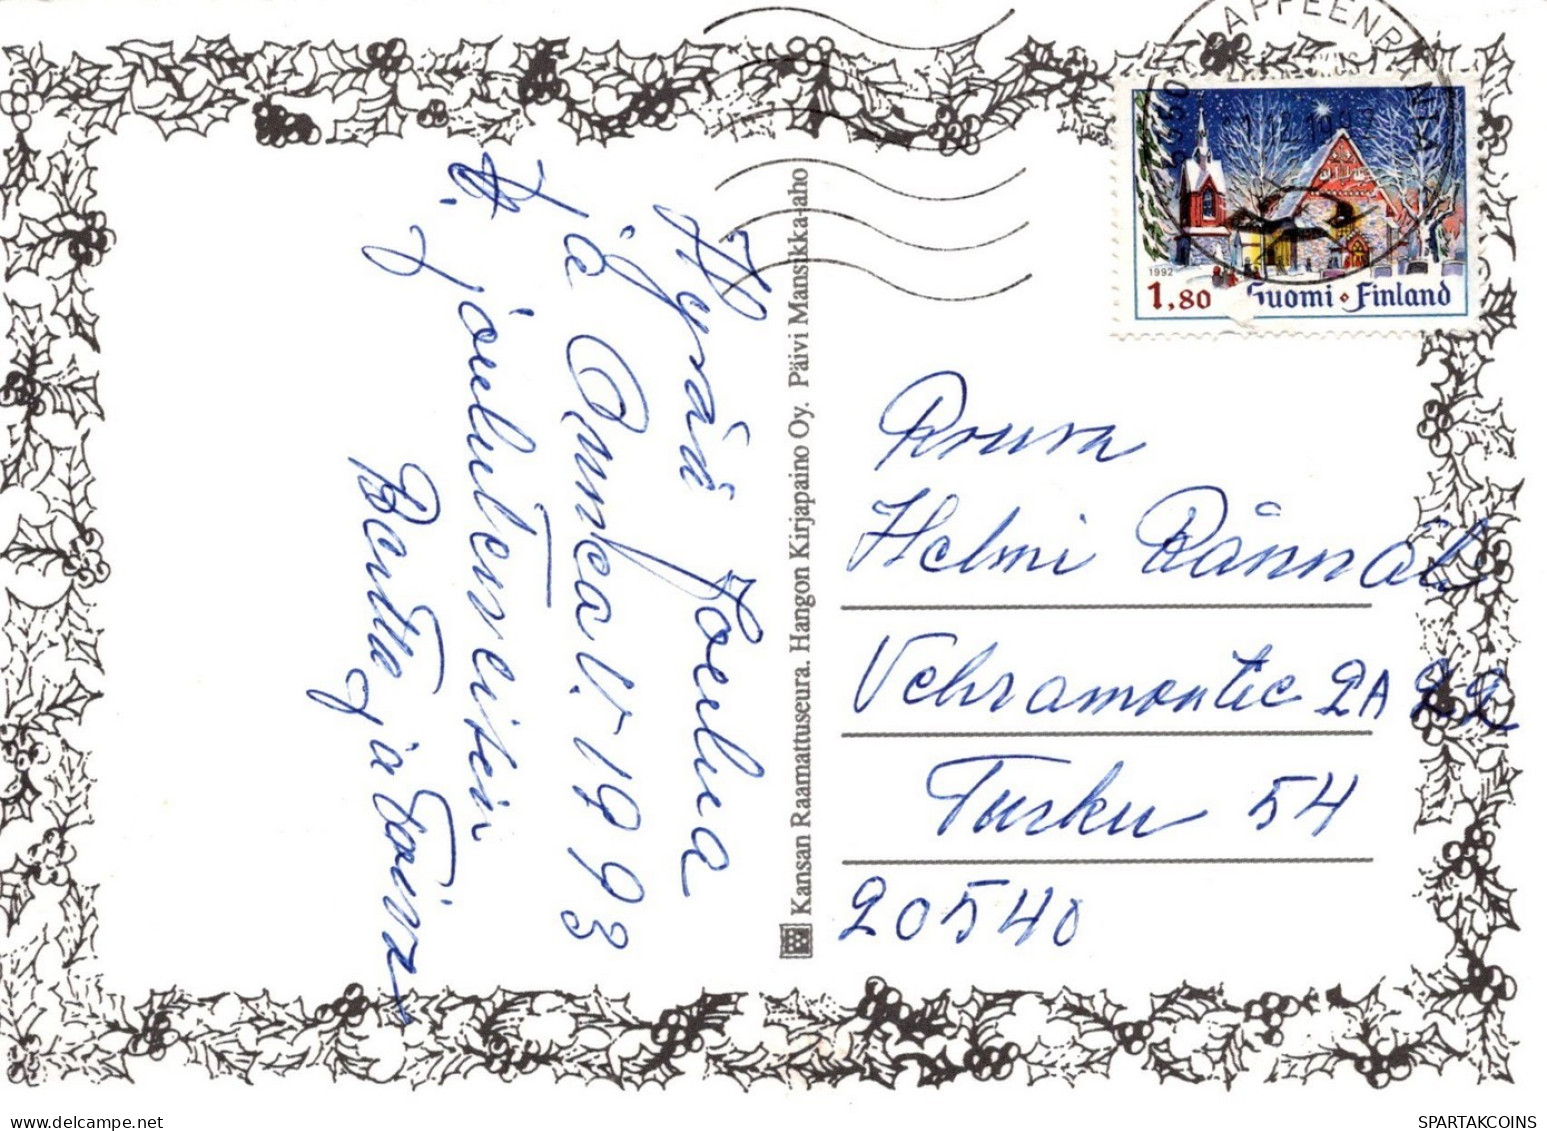 Hyvää Joulua
ja Onnea V. 1993
T. jouluterveisin
Bertta ja Toivo
Kansan Raamattuseura. Hangon Kirjapaino Oy. Päivi Mansikka-aho
LAPPEENRANTA
1992
1,80 Suomi • Finland
Rouva
Helmi Rännäli
Vehramontie 2A 22
Turku 54
20540
www.delcampe.net
SPARTAKCOINS